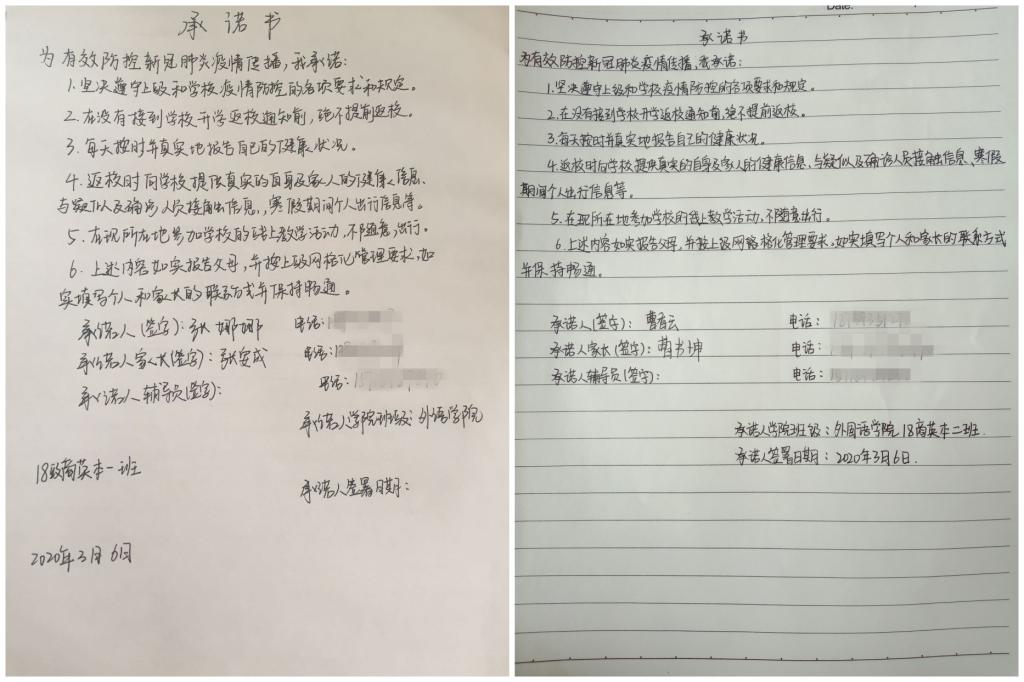 承诺书
为有效防控新冠肺炎疫情传播,我承诺:
1.坚决遵守上级和学校疫情防控的各项要求和规定。
2.在没有接到学校开学返校通知前,绝不提前返校。
3.每天按时并真实地报告自己的健康状况。
4.返校时向学校提供真实的自身及家人的健康信息、
与疑似及确诊人员接触出信息,寒假期间个人出行信息等。
5.在现所在地参加学校的线上教学活动,不随意出行。
6.上述内容如实报告父母,并按上级网格化管理要求,如
实填写个人和家长的联系方式并保持畅通。
承诺人(签字):张娜娜 电话:1
承诺人家长(签字):张安成 电话:1
承诺人辅导员(签字): 电话:1
承诺人学院班级:外语学院
18级商英本一班
承诺人签署日期:
2020年3月6日
Date:
承诺书
为有效防控新冠肺炎疫情传播,我承诺:
1.坚决遵守上级和学校疫情防控的各项要求和规定。
2.在没有接到学校开学返校通知前,绝不提前返校。
3.每天按时并真实地报告自己的健康状况。
4.返校时向学校提供真实的自身及家人的健康信息、与疑似及确诊人员接触出信息、寒假
期间个人出行信息等。
5.在现所在地参加学校的线上教学活动,不随意出行。
6.上述内容如实报告父母,并按上级网格格化管理要求,如实填写个人和家长的联系方式
并保持畅通。
承诺人(签字):曹香云 电话:
承诺人家长(签字):曹书坤 电话:
承诺人辅导员(签字): 电话:
承诺人学院班级:外国语学院18商英本二班.
承诺人签署日期:2020年3月6日.